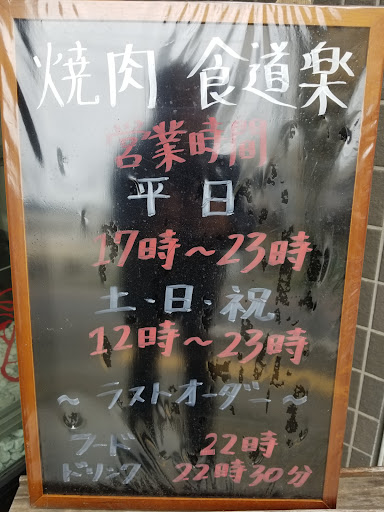 焼肉 食道楽
営業時間
平日
17時～23時
土・日・祝
12時～23時
～ラストオーダー～
フード 22時
ドリンク 22時30分